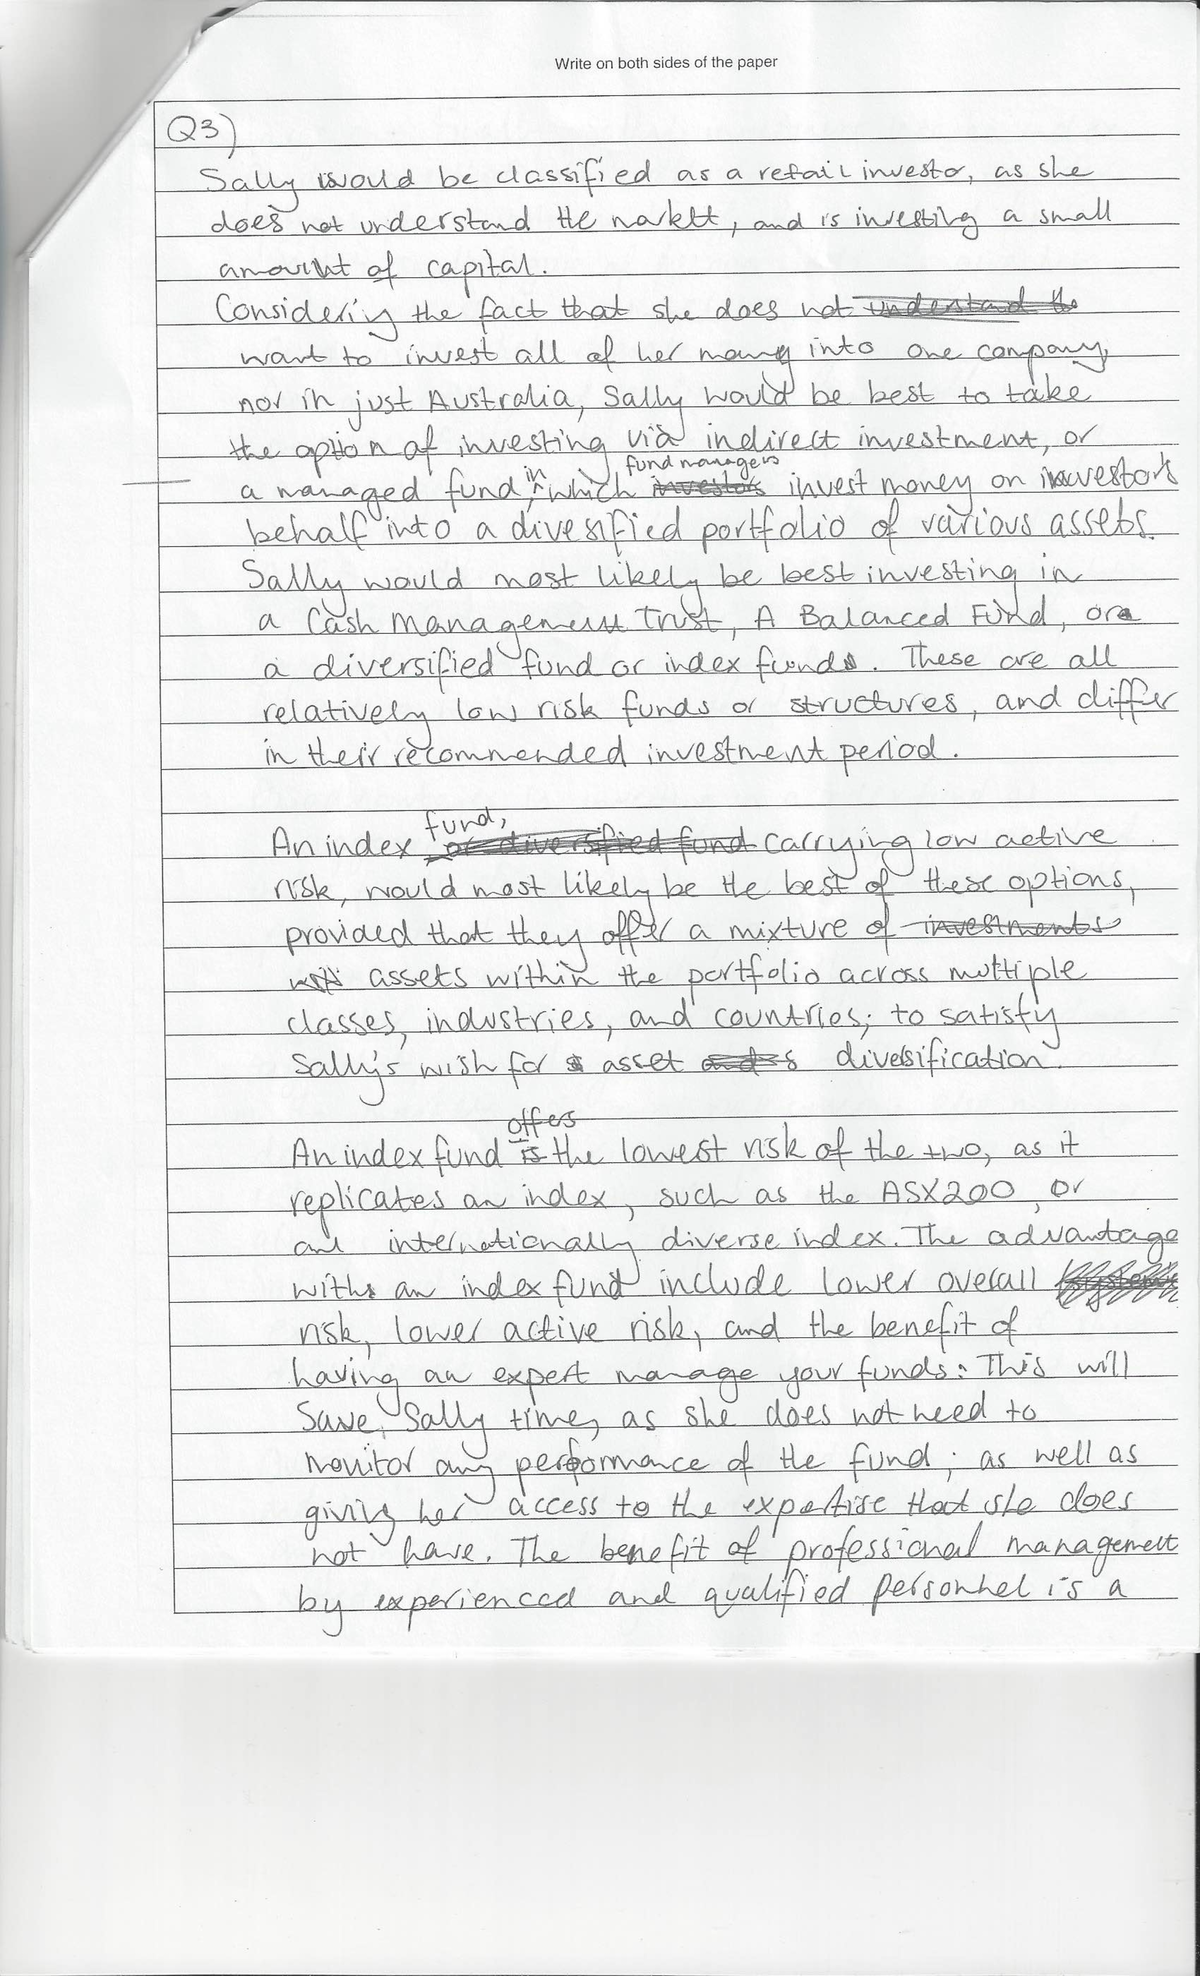 Write on both sides of the paper
Q3)
Sally would be classified as a retail investor, as she
does not understand the market, and is investing a small
amount of capital.
Considering the fact that she does not understand the
want to invest all of her money into one company,
nor in just Australia, Sally would be best to take
the option of investing via indirect investment, or
fund managers
a managed fund, in which investors invest money on investors
behalf into a diversified portfolio of various assets.
Sally would most likely be best investing in
a Cash Management Trust, A Balanced Fund, or a
a diversified fund or index funds. These are all
relatively low risk funds or structures, and differ
in their recommended investment period.
fund,
An index or diversified fund carrying low active
risk, would most likely be the best of these options,
provided that they offer a mixture of investments
assets within the portfolio across multiple
classes, industries, and countries; to satisfy
Sally's wish for asset diversification.
offers
An index fund is the lowest risk of the two, as it
replicates an index, such as the ASX200, or
an internationally diverse index. The advantage
with an index fund include lower overall
risk, lower active risk, and the benefit of
having an expert manage your funds. This will
save Sally time, as she does not need to
monitor any performance of the fund; as well as
giving her access to the expertise that she does
not have. The benefit of professional management
by experienced and qualified personnel is a